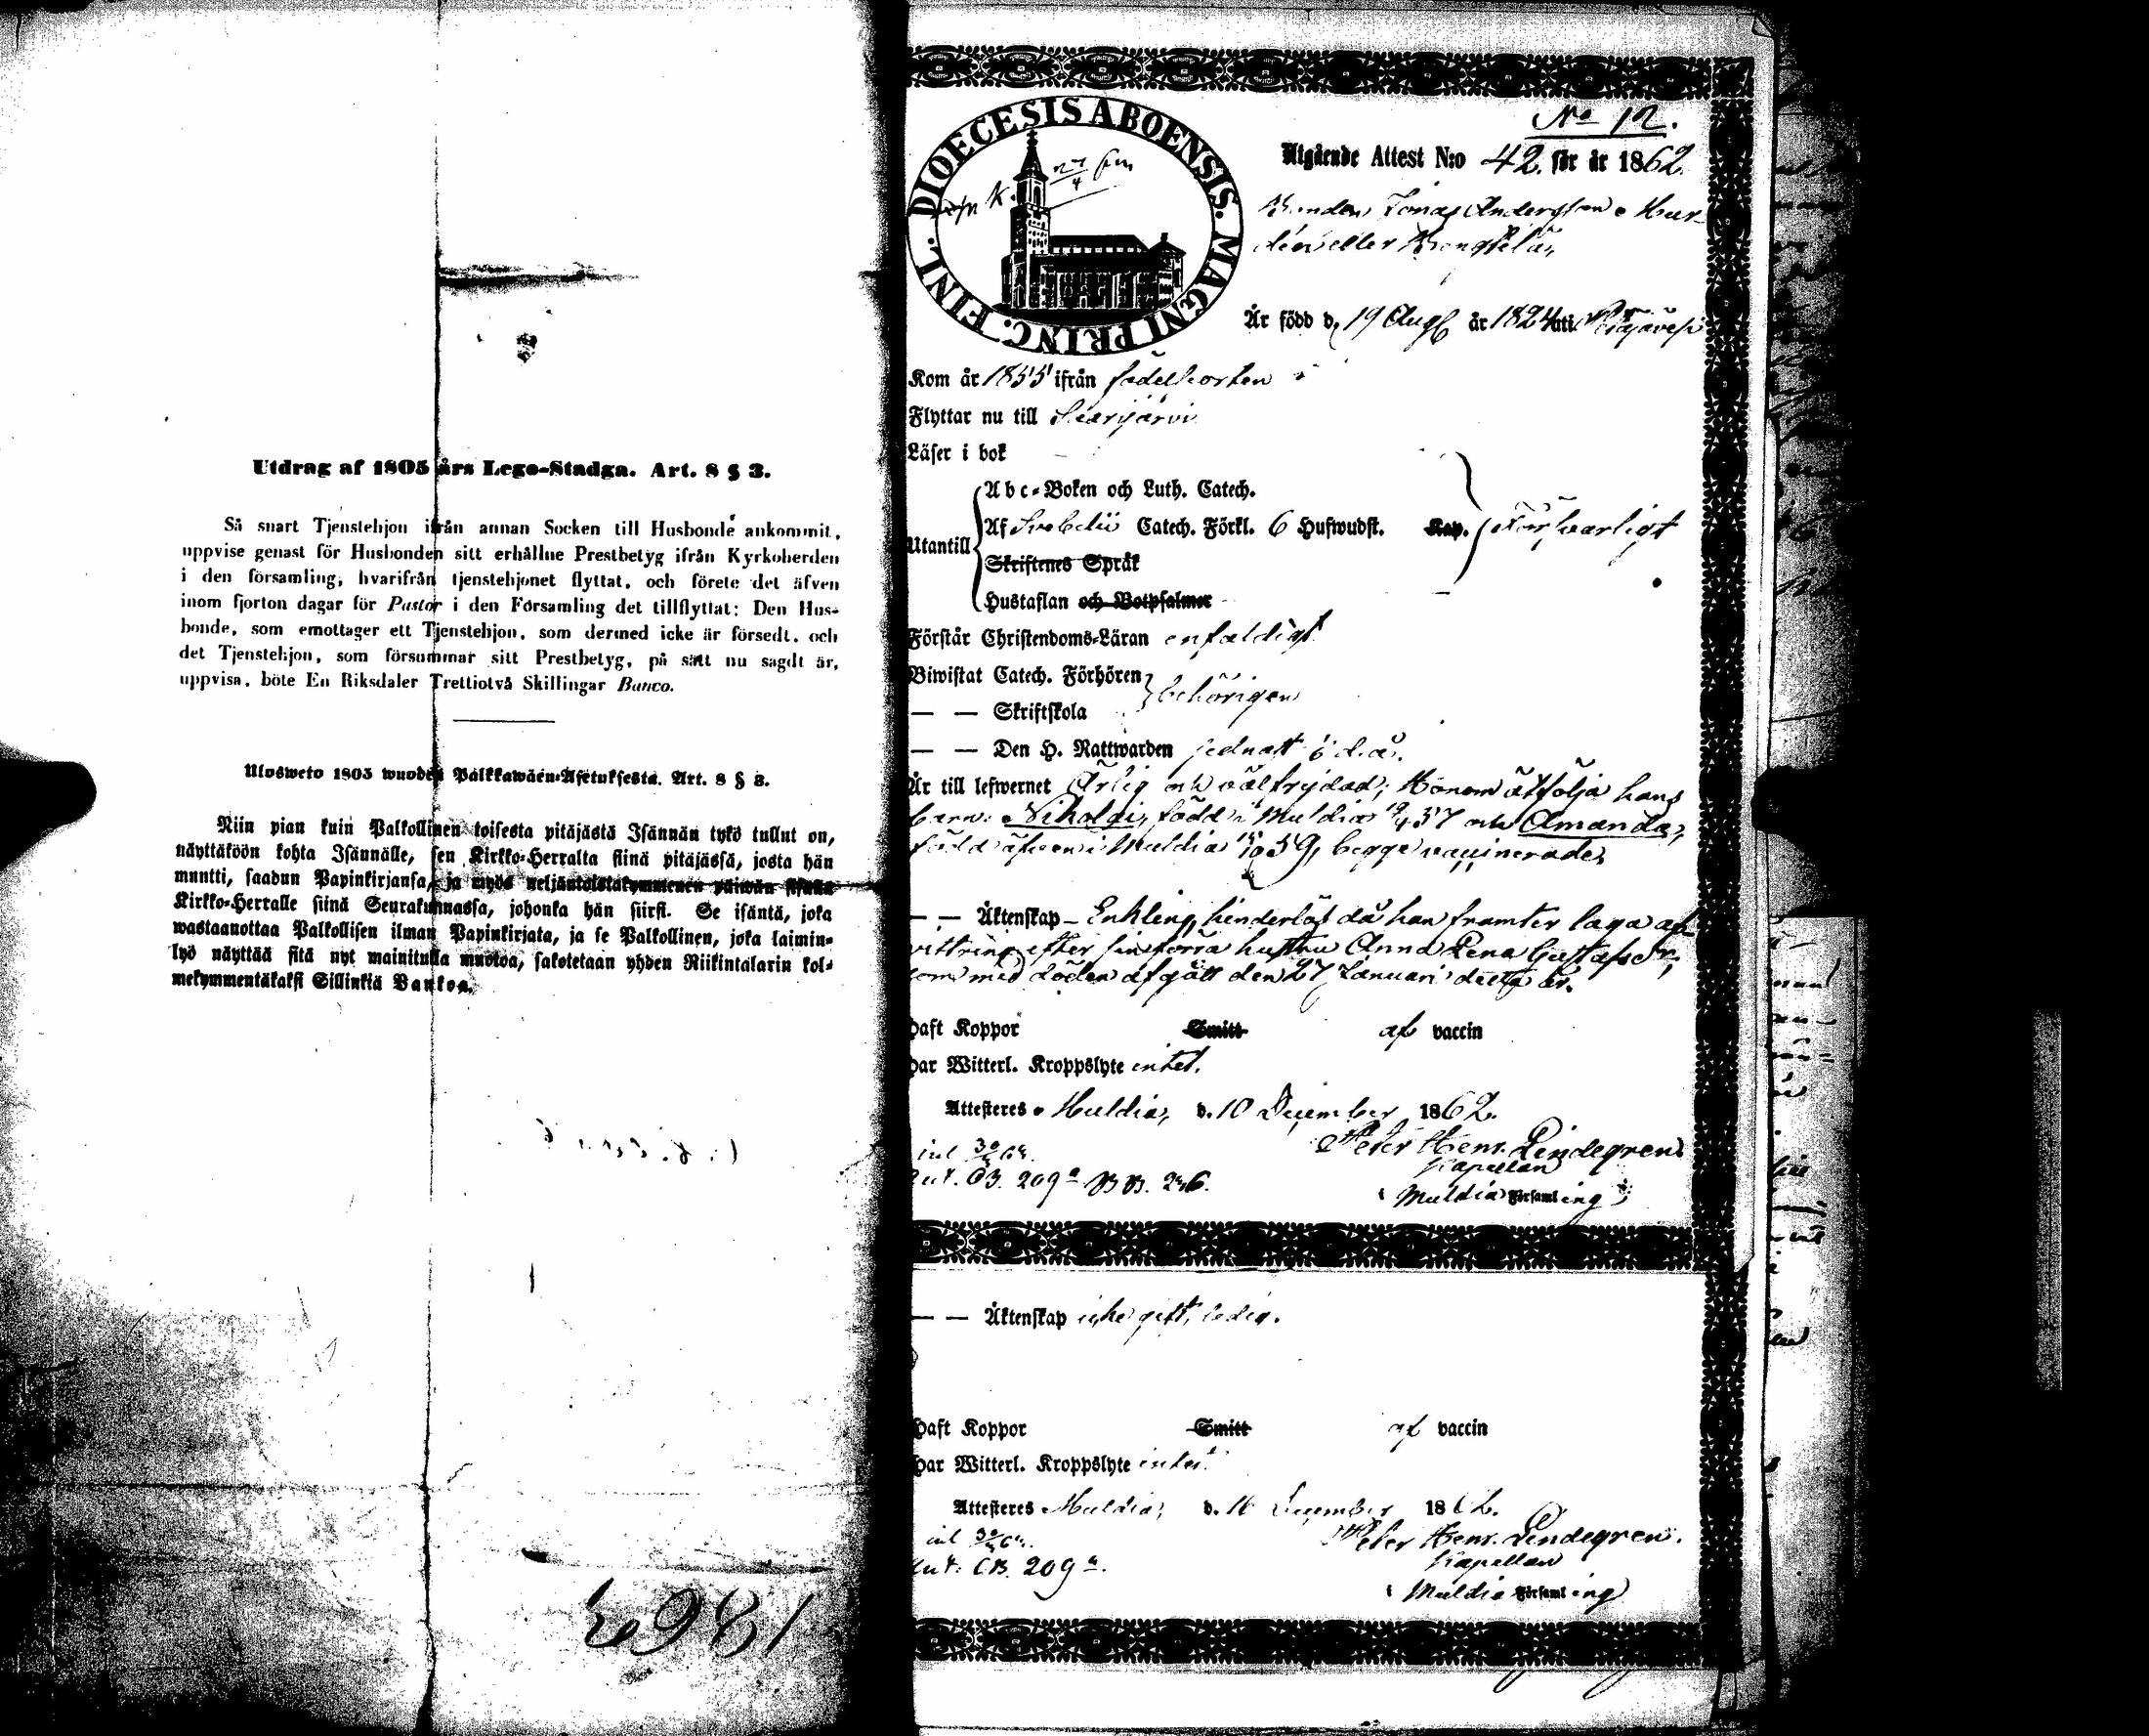 Utdrag af 1805 års Lego-Stadga. Art. 8 § 3.
Så snart Tjenstehjon ifrån annan Socken till Husbonde ankommit,
uppvise genast för Husbonden sitt erhållne Prestbetyg ifrån Kyrkoherden
i den församling, hvarifrån tjenstehjonet flyttat, och förete det äfven
inom fjorton dagar för Pastor i den Församling det tillflyttat: Den Hus-
bonde, som emottager ett Tjenstehjon, som dermed icke är försedt, och
det Tjenstehjon, som försummar sitt Prestbetyg, på sätt nu sagdt är,
uppvisa, böte En Riksdaler Trettiotvå Skillingar Banco.
Ulosweto 1805 wuoden Palkkawäen-Asetuksesta. Art. 8 § 3.
Niin pian kuin Palkollinen toisesta pitäjästä Isännän tykö tullut on,
näyttäköön kohta Isännälle, sen Kirkko-Herralta siinä pitäjässä, josta hän
muutti, saadun Papinkirjansa, ja myös neljäntoistakymmenen päiwän sisällä
Kirkko-Herralle siinä Seurakunnassa, johonka hän siirsi. Se isäntä, joka
wastaanottaa Palkollisen ilman Papinkirjata, ja se Palkollinen, joka laimin-
lyö näyttää sitä nyt mainitulla muotoa, sakotetaan yhden Riikintalarin kol-
mekymmentäkaksi Sillinkiä Bankoa.
1863
DIOECESIS ABOENSIS. MAGNI PRINC. FINL.
No 12.
Utgående Attest N:o 42. för år 1862.
Bonden Jonas Andersson Hur-
den eller Kongkela,
Är född d. 19 Aug år 1824 uti Pihjavesi
Kom år 1855 ifrån födelseorten
Flyttar nu till Saarijärvi
Läser i bok
Utantill
Abc-Boken och Luth. Catech.
Af Svebelii Catech. Förkl. 6 Hufwudst. Kap. Försvarligt
Skriftenes Språk
Hustaflan och Botpsalmer
Förstår Christendoms-Läran enfaldigt
Biwistat Catech. Förhören behörigen
— — Skriftskola
— — Den H. Nattwarden sednast d.å.
Är till lefwernet Ärlig och välfrejdad; Honom åtfölja hans
barn: Nikolai, född i Muldia 57 och Amanda,
född äfven i Muldia 59, begge vaccinerade,
— — Äktenskap — Enkling, hinderlös då han framter laga af-
vittring efter sin förra hustru Anna Lena Gustafsdr,
som med döden afgått den 27 Januari detta år.
Haft Koppor Smitt af vaccin
Har Witterl. Kroppslyte intet.
Attesteres Muldia, d. 10 December 1862.
Peter Henr. Lindegren
Kapellan
i Muldia Församling
CB. 209
— — Äktenskap icke gift, ledig.
Haft Koppor Smitt af vaccin
Har Witterl. Kroppslyte intet.
Attesteres Muldia, d. 16 December 1862.
Peter Henr. Lindegren.
Kapellan
i Muldia Församling
CB. 209